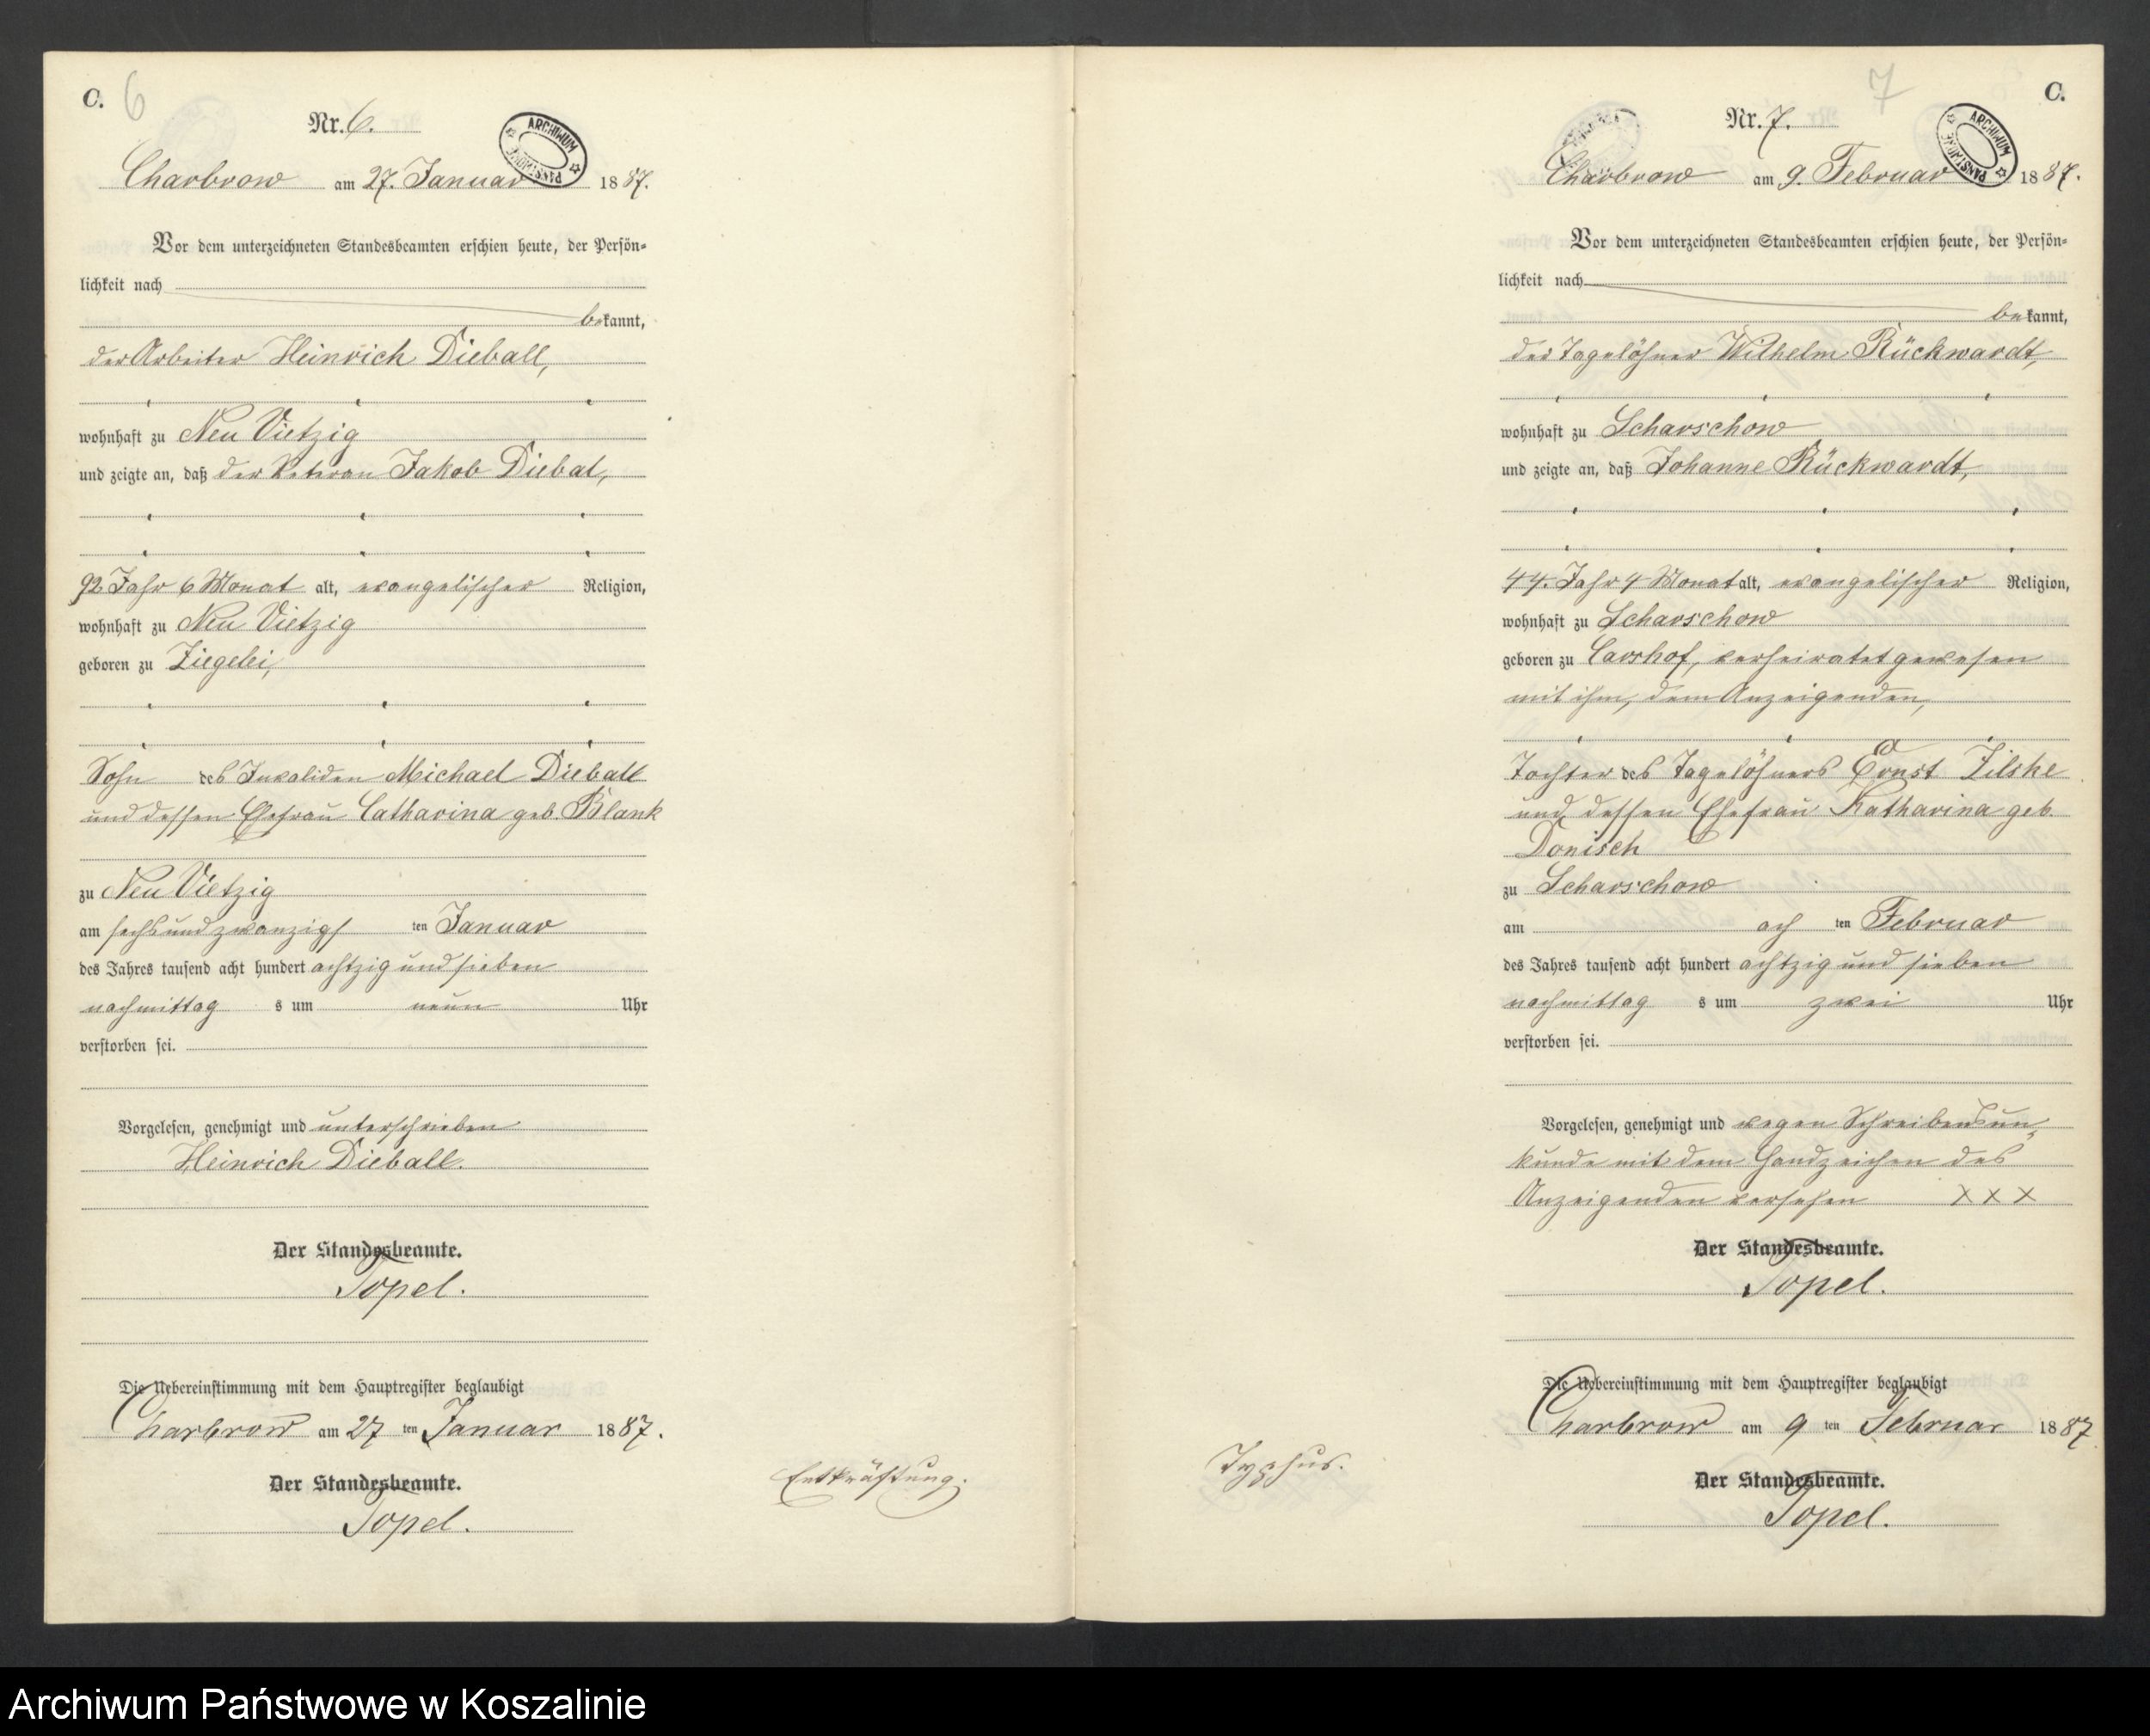 C. 6
Nr. 6.
ARCHIWUM PAŃSTWOWE
Charbrow am 27. Januar 1887.
Vor dem unterzeichneten Standesbeamten erschien heute, der Persön=
lichkeit nach
bekannt,
der Arbeiter Heinrich Dieball,
wohnhaft zu Neu Vietzig
und zeigte an, daß der Veteran Jakob Diebal,
92 Jahr 6 Monat alt, evangelischer Religion,
wohnhaft zu Neu Vietzig
geboren zu Ziegelei,
Sohn des Invaliden Michael Dieball
und dessen Ehefrau Catharina geb. Blank
zu Neu Vietzig
am sechsundzwanzigs ten Januar
des Jahres tausend acht hundert achtzig und sieben
nachmittag s um neun Uhr
verstorben sei.
Vorgelesen, genehmigt und unterschrieben
Heinrich Dieball.
Der Standesbeamte.
Topel.
Die Uebereinstimmung mit dem Hauptregister beglaubigt
Charbrow am 27 ten Januar 1887.
Der Standesbeamte.
Topel.
Entkräftung.
7 C.
Nr. 7.
ARCHIWUM PAŃSTWOWE
Charbrow am 9. Februar 1887.
Vor dem unterzeichneten Standesbeamten erschien heute, der Persön=
lichkeit nach
bekannt,
der Tagelöhner Wilhelm Rückwardt,
wohnhaft zu Scharschow
und zeigte an, daß Johanne Rückwardt,
44 Jahr 4 Monat alt, evangelischer Religion,
wohnhaft zu Scharschow
geboren zu Carshof, verheiratet gewesen
mit ihm, dem Anzeigenden,
Tochter des Tagelöhners Ernst Zilske
und dessen Ehefrau Katharina geb.
Donisch
zu Scharschow
am ach ten Februar
des Jahres tausend acht hundert achtzig und sieben
nachmittag s um zwei Uhr
verstorben sei.
Vorgelesen, genehmigt und wegen Schreibensun=
kunde mit dem Handzeichen des
Anzeigenden versehen X X X
Der Standesbeamte.
Topel.
Die Uebereinstimmung mit dem Hauptregister beglaubigt
Charbrow am 9 ten Februar 1887
Der Standesbeamte.
Topel.
Typhus.
Archiwum Państwowe w Koszalinie